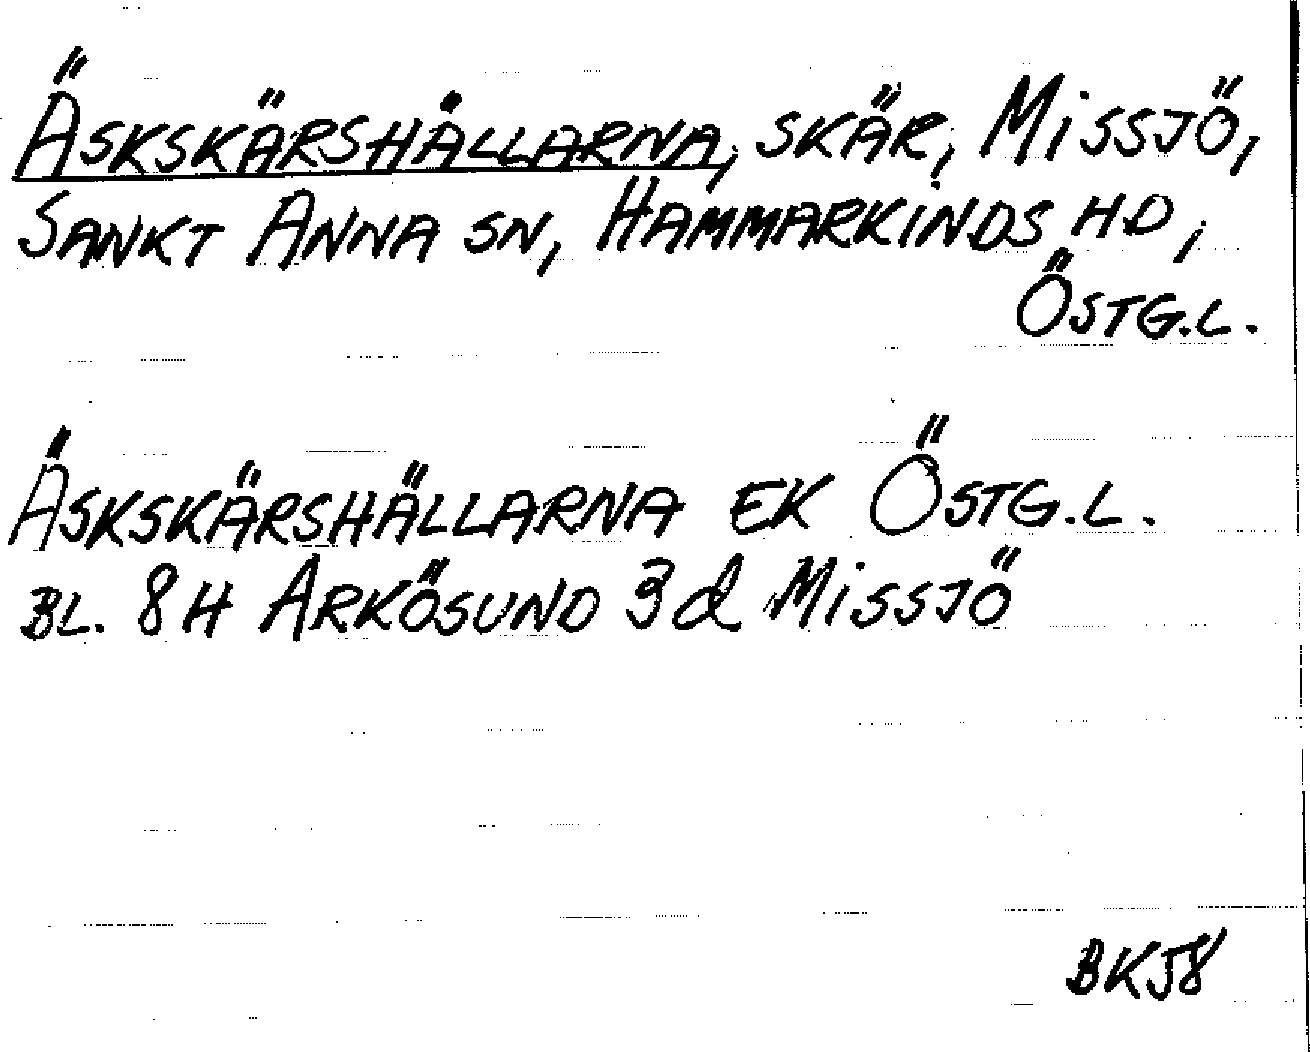 ÄSKSKÄRSHÄLLARNA, SKÄR, MISSJÖ,
SANKT ANNA SN, HAMMARKINDS HD,
ÖSTG.L.
ÄSKSKÄRSHÄLLARNA EK ÖSTG.L.
BL. 8H ARKÖSUND 3d MISSJÖ
BKJ8